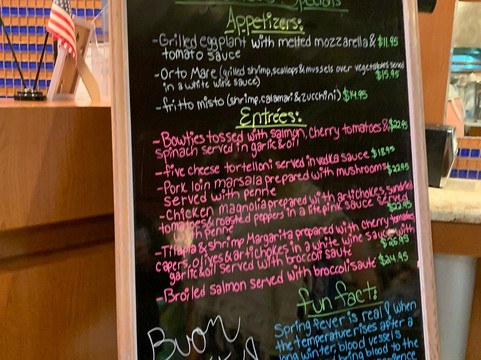 Specials
Appetizers:
-Grilled eggplant with melted mozzarella & $11.95
tomato sauce
-Orto Mare (grilled shrimp, scallops & mussels over vegetables served
in a white wine sauce) $15.95
-fritto misto (shrimp, calamari & zucchini) $14.95
Entrées:
-Bowties tossed with salmon, cherry tomatoes & $22.95
spinach served in garlic & oil
-Five cheese tortelloni served in vodka sauce $18.95
-Pork loin marsala prepared with mushrooms $22.95
served with penne
-Chicken magnolia prepared with artichokes, sundried
tomatoes & roasted peppers in a lite pink sauce served
with penne $22.95
-Tilapia & shrimp Margarita prepared with cherry tomatoes,
capers, olives & artichokes in a white wine sauce with
garlic & oil served with broccoli sauté $26.95
-Broiled salmon served with broccoli sauté $24.95
fun fact:
Spring fever is real! When
the temperature rises after a
long winter, blood vessels
blood to the
Buon